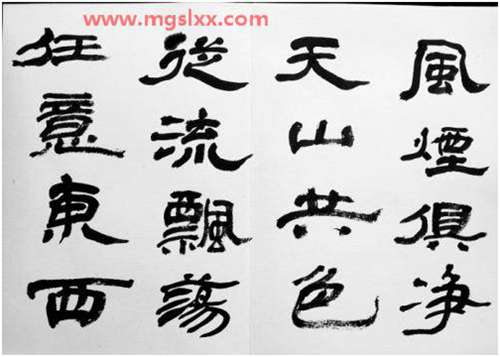 www.mgslxx.com
風煙俱净
天山共色
從流飄蕩
任意東西